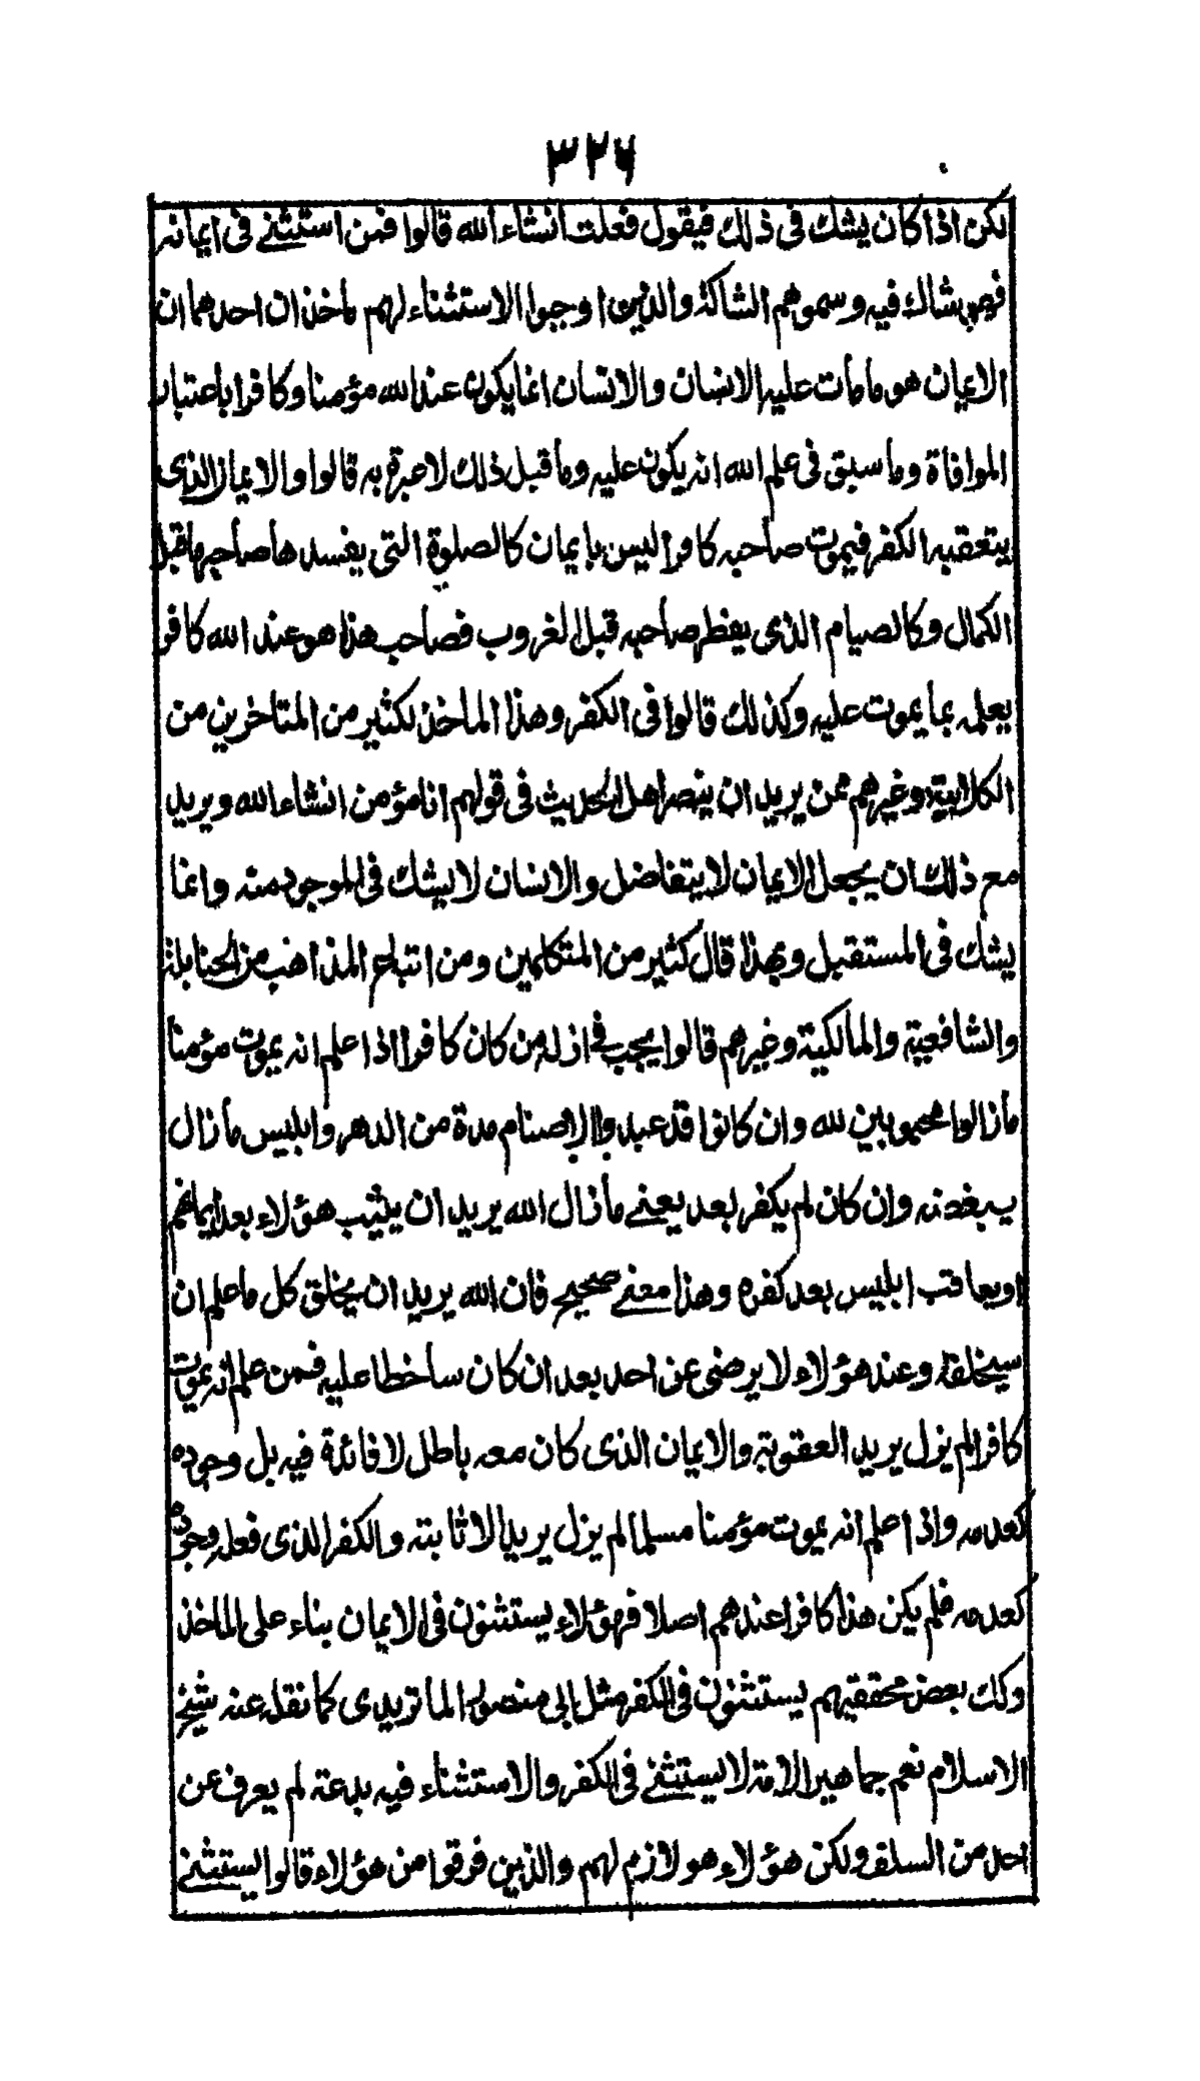 ٣٢٦
لكن اذا كان يشك فى ذلك فيقول فعلت انشاء الله قالوا فمن استثنے فى ايمانه
فهو شاك فيه وسموهم الشاكة والذين اوجبوا الاستثناء لهم مأخذان احدهما ان
الايمان هو ما مات عليه الانسان والانسان انما يكون عند الله مؤمنا وكافرا باعتبار
الموافاة وما سبق فى علم الله انه يكون عليه وما قبل ذلك لا عبرة به قالوا والايمان الذى
يتعقبه الكفر فيموت صاحبه كافرا ليس بايمان كالصلوة التى يفسدها صاحبها قبل
الكمال وكالصيام الذى يفطر صاحبه قبل الغروب فصاحب هذا هو عند الله كافر
يعلمه بما يموت عليه وكذلك قالوا فى الكفر وهذا المأخذ لكثير من المتاخرين من
الكلابية وغيرهم ممن يريد ان ينصر اهل الحديث فى قولهم انا مؤمن انشاء الله ويريد
مع ذلك ان يجعل الايمان لا يتفاضل والانسان لا يشك فى الموجود منه وانما
يشك فى المستقبل وبهذا قال كثير من المتكلمين ومن اتباع المذاهب من الحنابلة
والشافعية والمالكية وغيرهم قالوا يحب فى ازله من كان كافرا اذا علم انه يموت مؤمنا
ما زالوا محبوبين لله وان كانوا قد عبدوا الاصنام مدة من الدهر وابليس ما زال
يبغضه وان كان لم يكفر بعد يعنے ما زال الله يريد ان يثيب هؤلاء بعد ايمانهم
اويعاقب ابليس بعد كفره وهذا معنے صحيح فان الله يريد ان يخلق كل ما علم ان
سيخلقه وعند هؤلاء لا يرضى عن احد بعد ان كان ساخطا عليه فمن علم انه يموت
كافرا لم يزل يريد العقوبة والايمان الذى كان معه باطل لا فائدة فيه بل وجوده
كعدمه واذا علم انه يموت مؤمنا مسلما لم يزل يريد الاثابته والكفر الذى فعله وجوده
كعدمه فلم يكن هذا كافرا عندهم اصلا فهؤلاء يستثنون فى الايمان بناء على المأخذ
وكك بعض محققيهم يستثنون فى الكفر مثل ابى منصور الماتريدى كما نقله عنه شيخ
الاسلام نعم جماهير الامة لا يستثنے فى الكفر والاستثناء فيه بدعته لم يعرف عن
احد من السلف ولكن هؤلاء هو لازم لهم والذين فرقوا من هؤلاء قالوا يستثنے